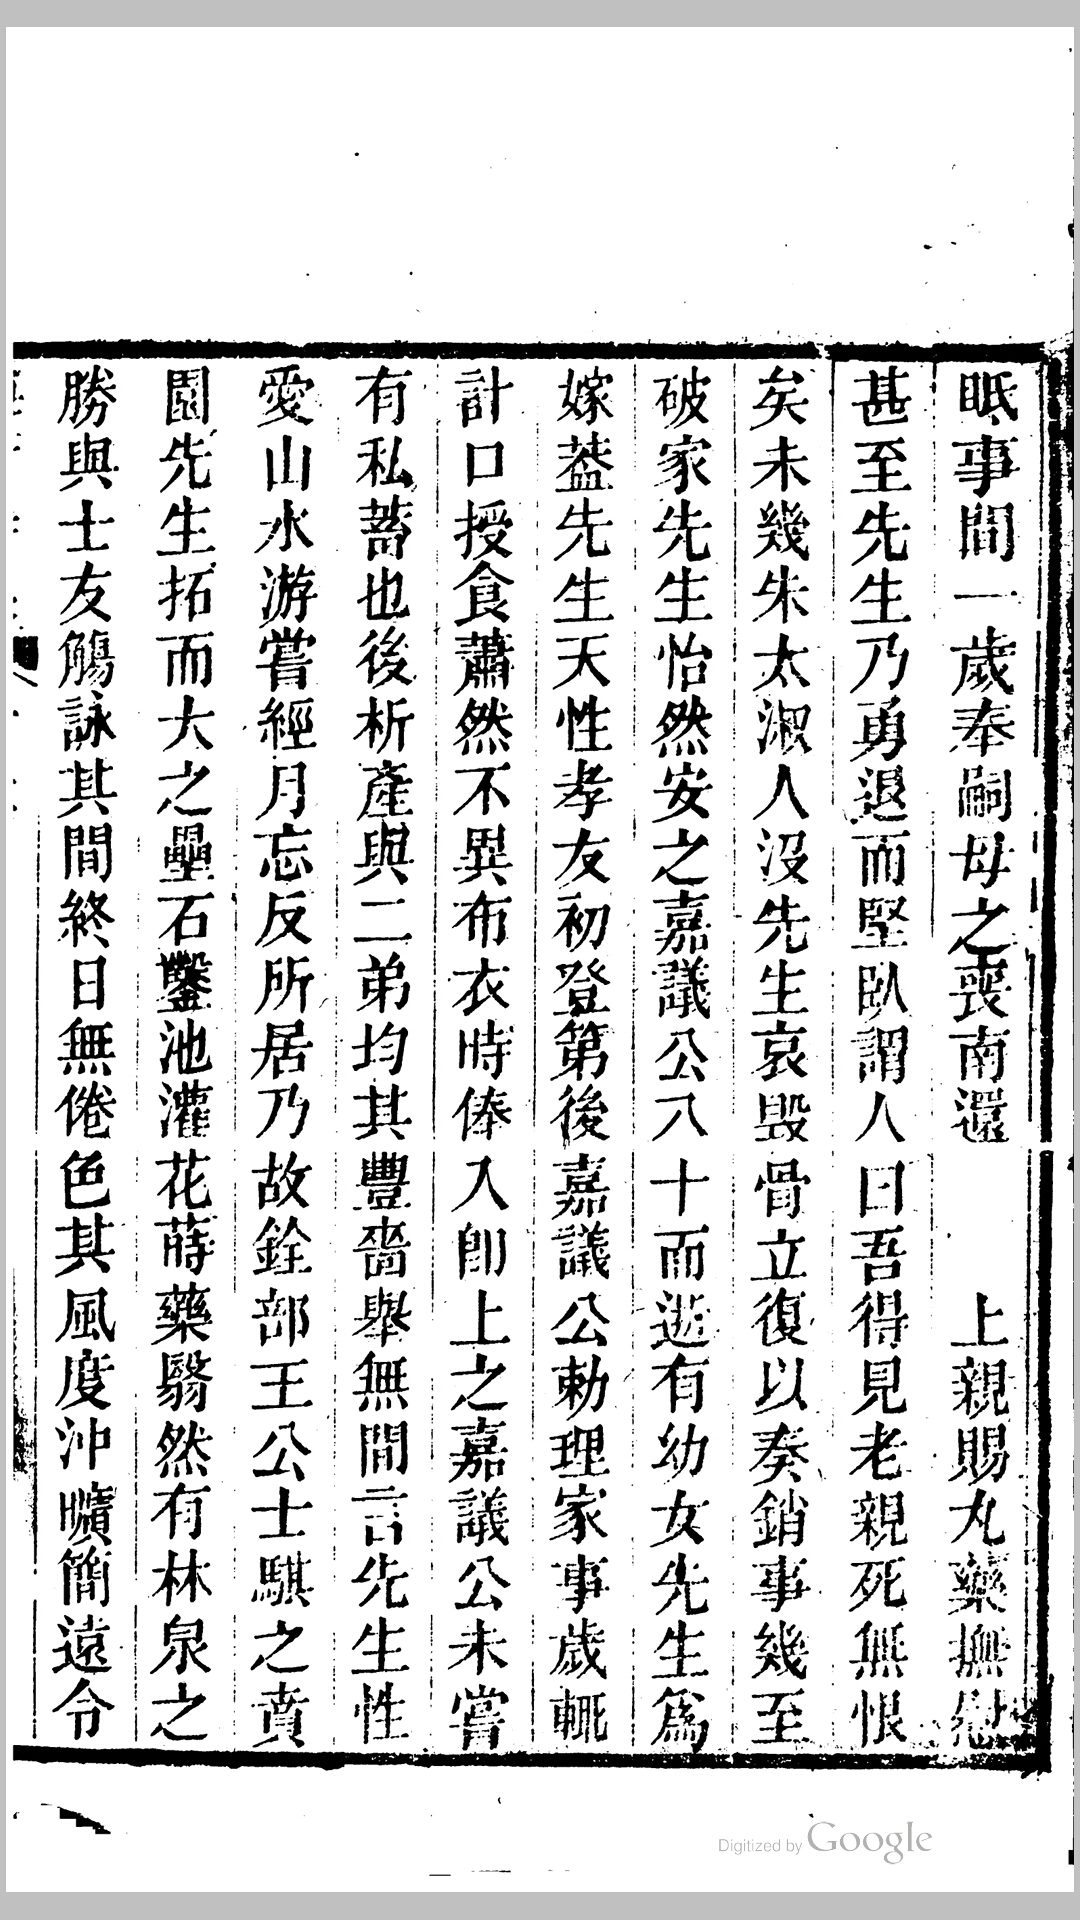 眂事間一歲奉嗣母之喪南還　上親賜丸藥撫慰
甚至先生乃勇退而堅臥謂人曰吾得見老親死無恨
矣未幾朱太淑人沒先生哀毀骨立復以奏銷事幾至
破家先生怡然安之嘉議公八十而逝有幼女先生爲
嫁葢先生天性孝友初登第後嘉議公勅理家事歲輒
計口授食蕭然不異布衣時俸入卽上之嘉議公未嘗
有私蓄也後析產與二弟均其豐嗇舉無間言先生性
愛山水游嘗經月忘反所居乃故銓部王公士騏之賁
園先生拓而大之壘石鑿池灌花蒔藥翳然有林泉之
勝與士友觴詠其間終日無倦色其風度沖曠簡遠令
Digitized by Google